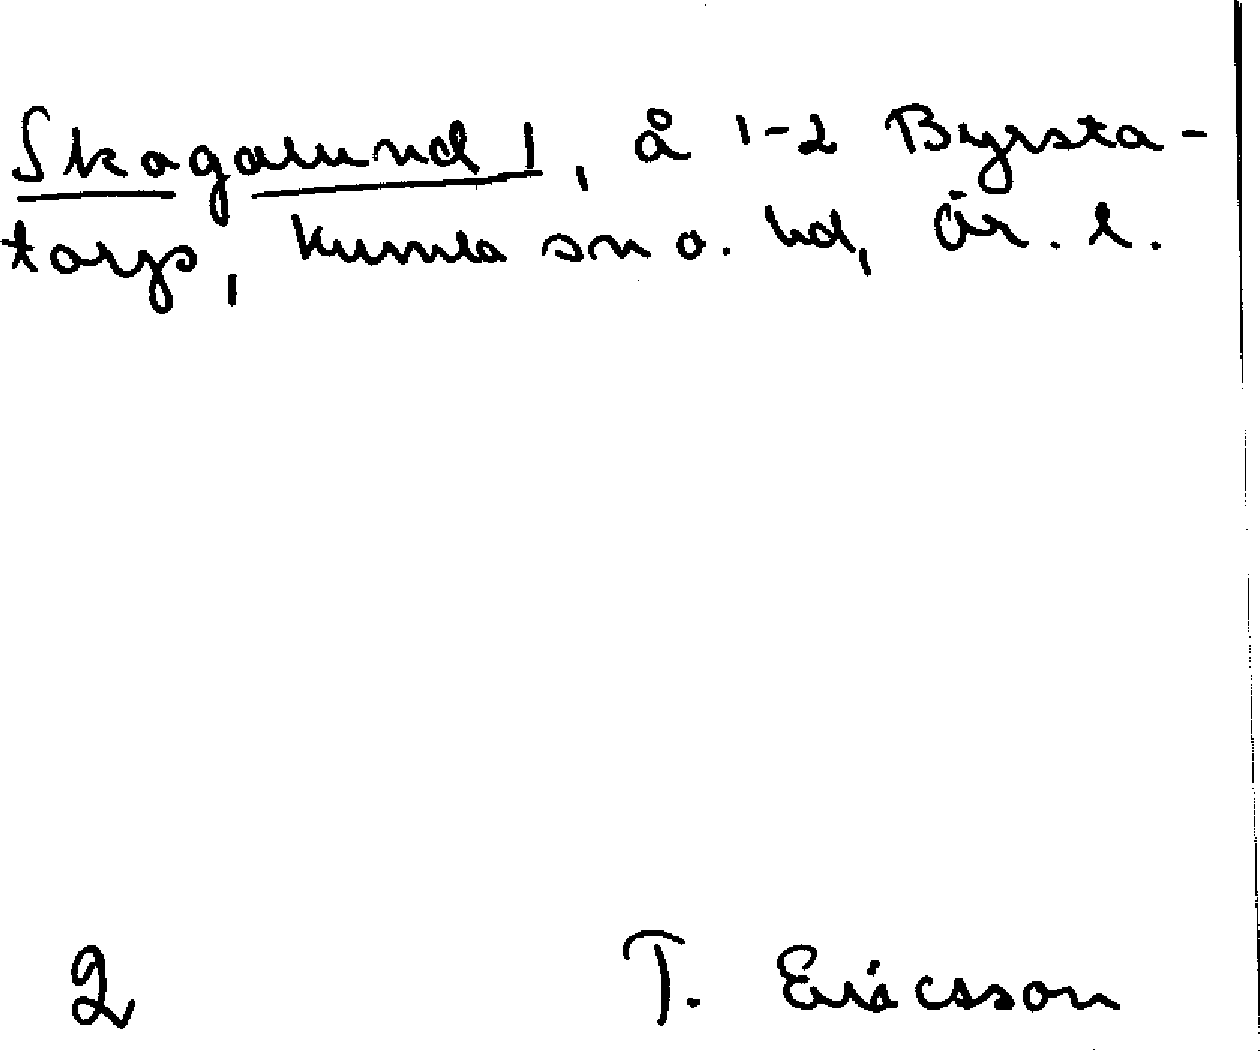 Skogalund 1, å 1-2 Byrsta-
torp, Kumla sn o. hd, Ör. l.
2 T. Ericsson